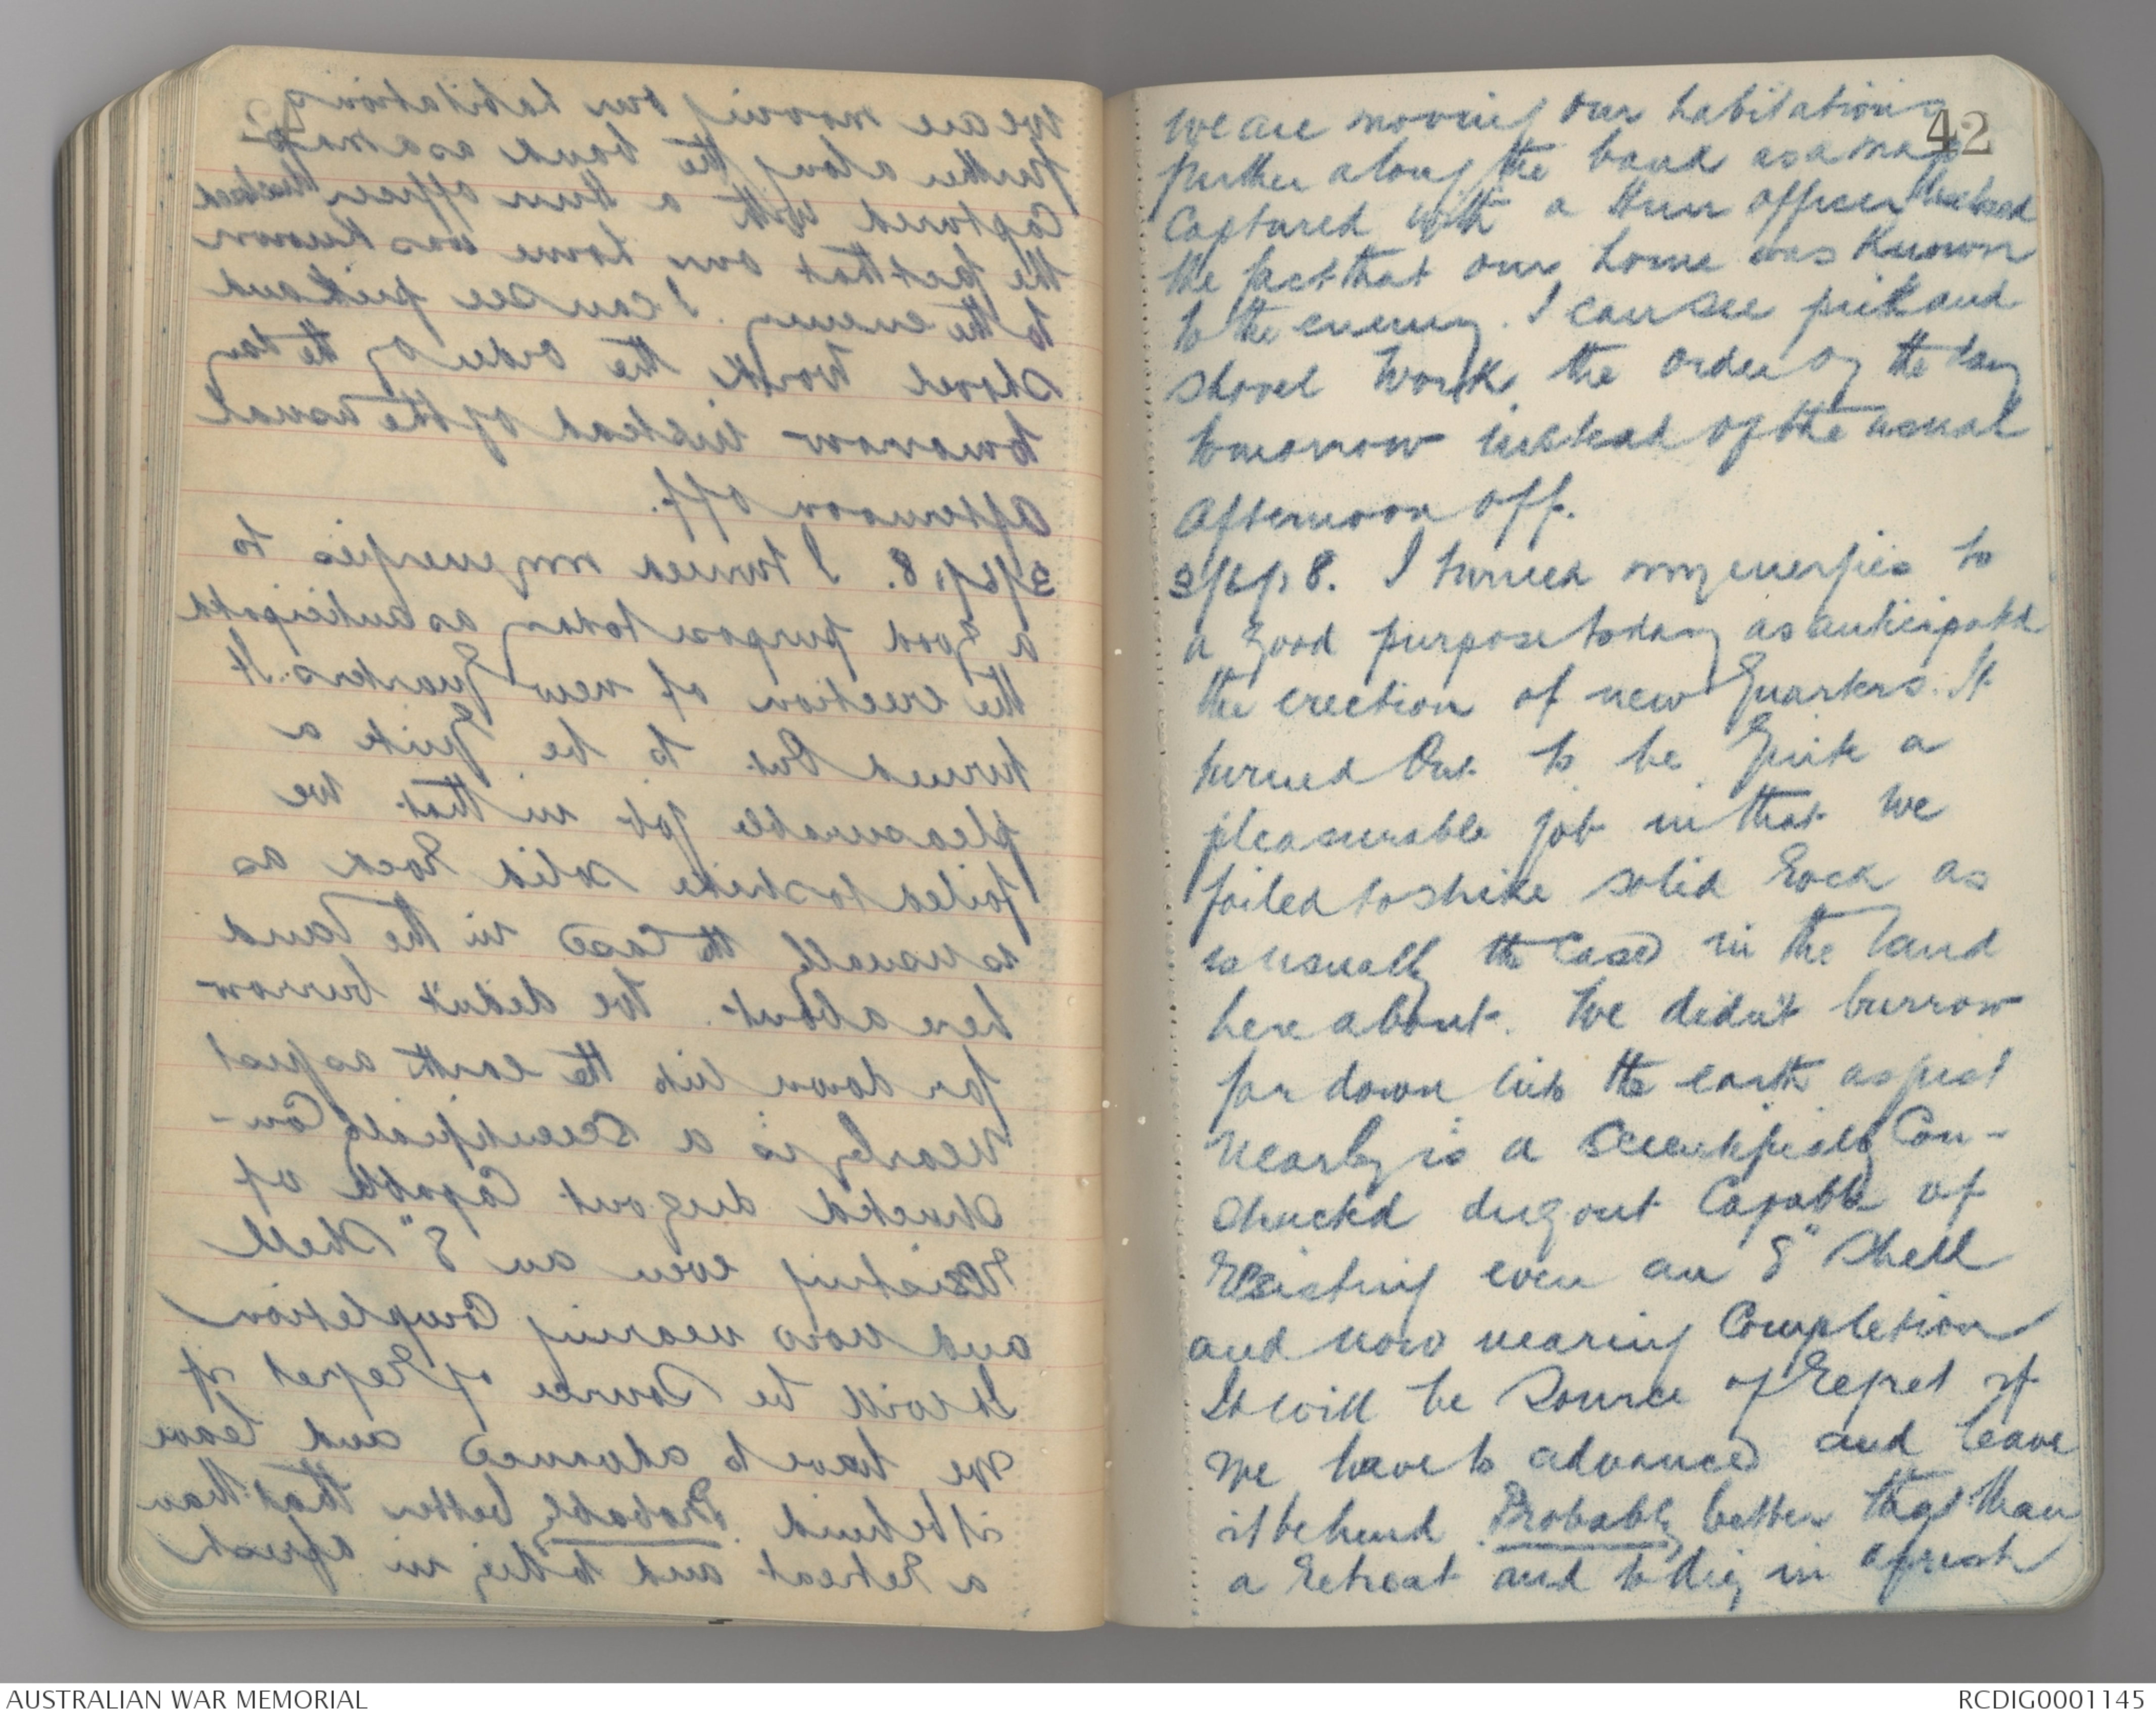 42
we are moving our habitations
further along the bank as a map
captured with a Hun officer
the fact that our home was known
to the enemy. I can see pick and
shovel work the order of the day
tomorrow instead of the usual
afternoon off.
8. I turned my energies to
a good purpose today as anticipated
the erection of new Quarters. It
turned Out to be Quite a
pleasurable job in that we
failed to strike solid Rock as
is usually the Case in the land
here about. We didn't burrow
far down into the earth as just
nearby is a Scientifically Con-
structed dugout Capable of
Resisting even an 8" Shell
and now nearing Completion
It will be Source of Regret if
we have to advance and leave
it behind. Probably better that than
a Retreat and to dig in afresh
AUSTRALIAN WAR MEMORIAL
RCDIG0001145